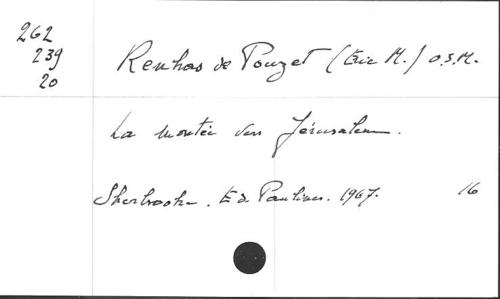 262
239
20
Renhas de Pouzet (Eric M.) O.S.M.
La montée vers Jérusalem.
Sherbrooke. Ed. Paulines. 1967. 16